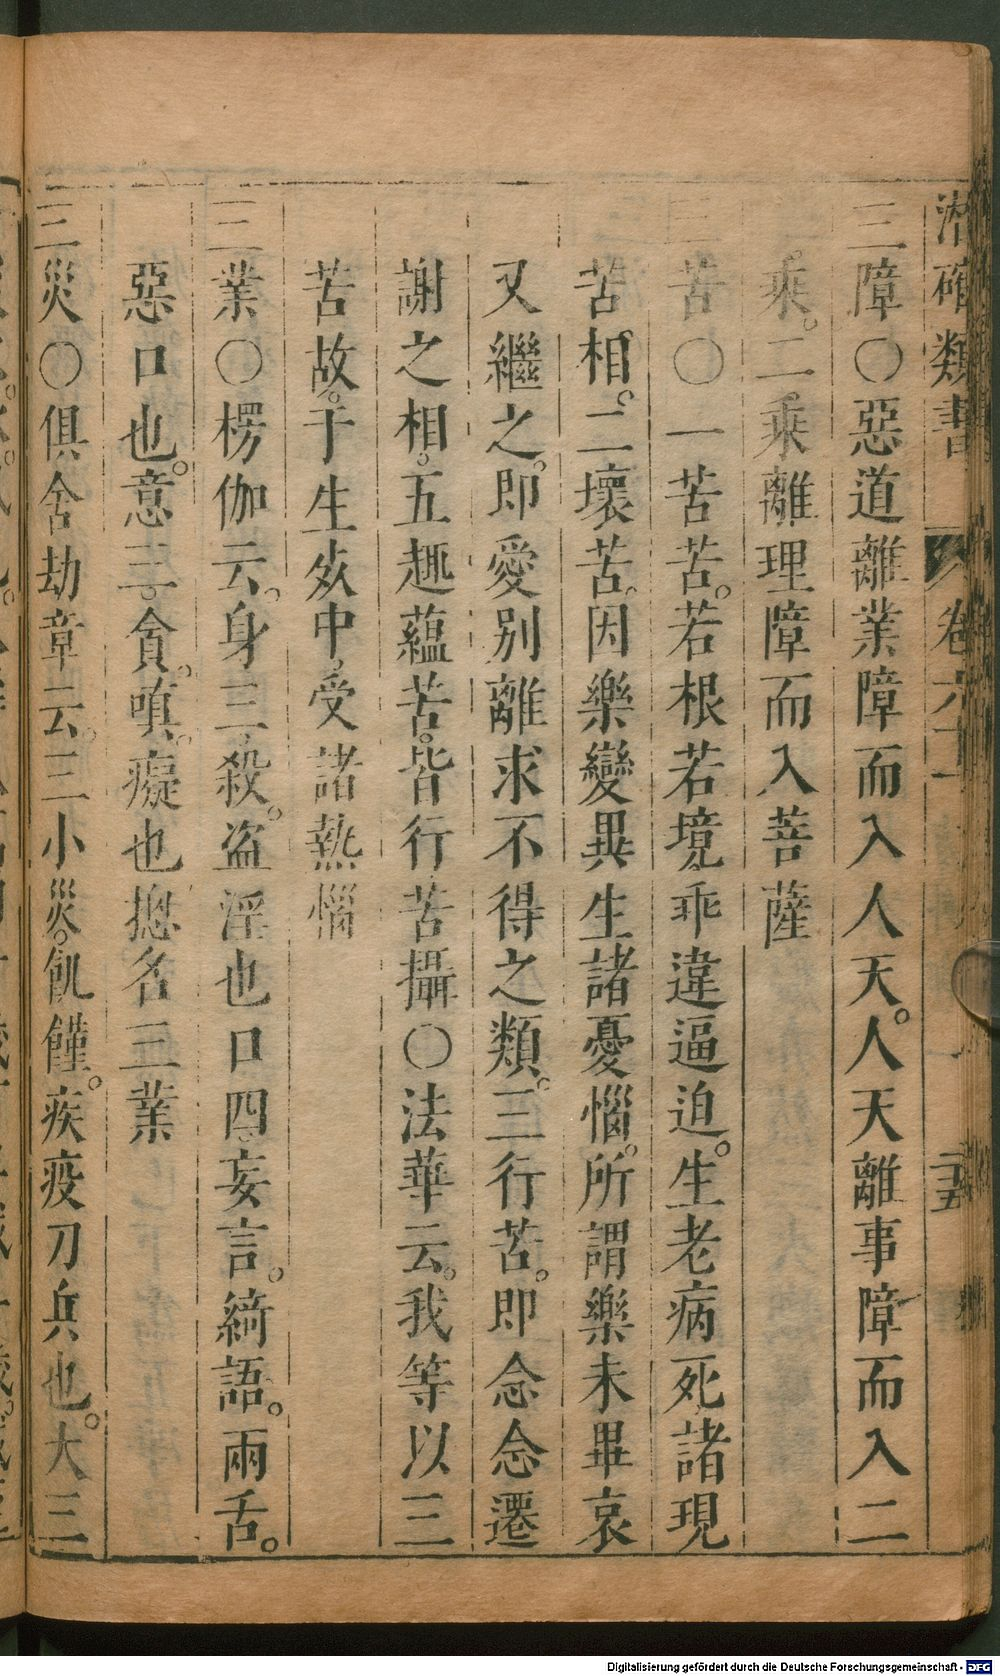 潛確類書 卷六十 二十五
三障○惡道離業障而入人天。人天離事障而入二
乘。二乘離理障而入菩薩
三苦○一苦苦。若根若境乖違逼迫。生老病死諸現
苦相。二壞苦。因樂變異生諸憂惱。所謂樂未畢哀
又繼之。即愛別離求不得之類。三行苦。即念念遷
謝之相。五趣蘊苦。皆行苦攝○法華云。我等以三
苦故。于生死中。受諸熱惱
三業○楞伽云。身三。殺。盜淫也口四。妄言。綺語。兩舌。
惡口也。意三。貪。嗔。癡也摠名三業
三災○俱舍劫章云。三小災。飢饉。疾疫刀兵也。大三
Digitalisierung gefördert durch die Deutsche Forschungsgemeinschaft - DFG